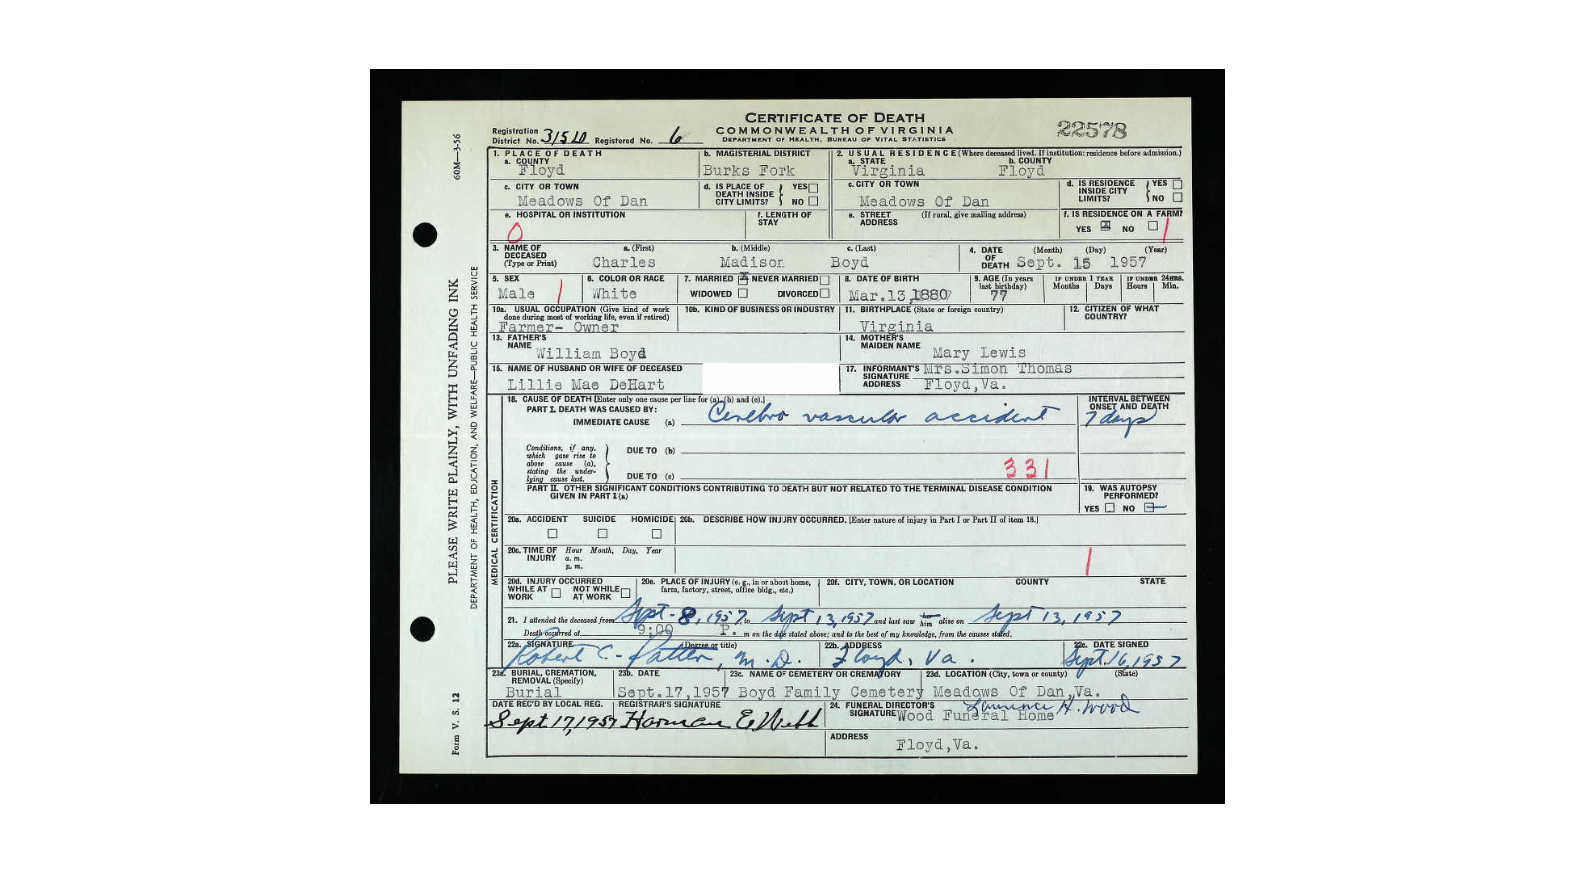 CERTIFICATE OF DEATH
COMMONWEALTH OF VIRGINIA
DEPARTMENT OF HEALTH, BUREAU OF VITAL STATISTICS
22578
Registration District No. 3150 Registered No. 6
60M—3-56
PLEASE WRITE PLAINLY, WITH UNFADING INK
DEPARTMENT OF HEALTH, EDUCATION, AND WELFARE—PUBLIC HEALTH SERVICE
Form V. S. 12
1. PLACE OF DEATH
a. COUNTY
Floyd
b. MAGISTERIAL DISTRICT
Burks Fork
2. USUAL RESIDENCE (Where deceased lived. If institution: residence before admission.)
a. STATE
Virginia
b. COUNTY
Floyd
c. CITY OR TOWN
Meadows Of Dan
d. IS PLACE OF DEATH INSIDE CITY LIMITS? YES NO
c. CITY OR TOWN
Meadows Of Dan
d. IS RESIDENCE INSIDE CITY LIMITS? YES NO
e. HOSPITAL OR INSTITUTION
0
f. LENGTH OF STAY
e. STREET ADDRESS (If rural, give mailing address)
f. IS RESIDENCE ON A FARM?
YES X NO
1
3. NAME OF DECEASED (Type or Print)
a. (First)
Charles
b. (Middle)
Madison
c. (Last)
Boyd
4. DATE OF DEATH (Month) (Day) (Year)
Sept. 15 1957
5. SEX
Male
1
6. COLOR OR RACE
White
7. MARRIED X NEVER MARRIED
WIDOWED DIVORCED
8. DATE OF BIRTH
Mar.13,1880
9. AGE (In years last birthday)
77
IF UNDER 1 YEAR
Months Days
IF UNDER 24 HRS.
Hours Min.
10a. USUAL OCCUPATION (Give kind of work done during most of working life, even if retired)
Farmer- Owner
10b. KIND OF BUSINESS OR INDUSTRY
11. BIRTHPLACE (State or foreign country)
Virginia
12. CITIZEN OF WHAT COUNTRY?
13. FATHER'S NAME
William Boyd
14. MOTHER'S MAIDEN NAME
Mary Lewis
15. NAME OF HUSBAND OR WIFE OF DECEASED
Lillie Mae DeHart
17. INFORMANT'S SIGNATURE Mrs.Simon Thomas
ADDRESS Floyd,Va.
MEDICAL CERTIFICATION
18. CAUSE OF DEATH [Enter only one cause per line for (a), (b) and (c).]
PART I. DEATH WAS CAUSED BY:
IMMEDIATE CAUSE (a) Cerebro vascular accident
INTERVAL BETWEEN ONSET AND DEATH
7 days
Conditions, if any, which gave rise to above cause (a), stating the underlying cause last.
DUE TO (b)
DUE TO (c)
331
PART II. OTHER SIGNIFICANT CONDITIONS CONTRIBUTING TO DEATH BUT NOT RELATED TO THE TERMINAL DISEASE CONDITION GIVEN IN PART I (a)
19. WAS AUTOPSY PERFORMED?
YES NO
20a. ACCIDENT SUICIDE HOMICIDE
20b. DESCRIBE HOW INJURY OCCURRED. [Enter nature of injury in Part I or Part II of item 18.]
20c. TIME OF INJURY Hour Month, Day, Year
a. m.
p. m.
1
20d. INJURY OCCURRED
WHILE AT WORK NOT WHILE AT WORK
20e. PLACE OF INJURY (e. g., in or about home, farm, factory, street, office bldg., etc.)
20f. CITY, TOWN, OR LOCATION COUNTY STATE
21. I attended the deceased from Sept-8, 1957, to Sept 13, 1957 and last saw her him alive on Sept 13, 1957
Death occurred at 9:00 P. m on the date stated above; and to the best of my knowledge, from the causes stated.
22a. SIGNATURE (Degree or title)
Robert C. M.D.
22b. ADDRESS
Floyd, Va.
22c. DATE SIGNED
Sept. 16, 1957
23a. BURIAL, CREMATION, REMOVAL (Specify)
Burial
23b. DATE
Sept.17,1957
23c. NAME OF CEMETERY OR CREMATORY
Boyd Family Cemetery
23d. LOCATION (City, town or county) (State)
Meadows Of Dan,Va.
DATE REC'D BY LOCAL REG.
Sept 17, 1957
REGISTRAR'S SIGNATURE
Harman E. Webb
24. FUNERAL DIRECTOR'S SIGNATURE Wood Funeral Home Lawrence H. Wood
ADDRESS
Floyd,Va.